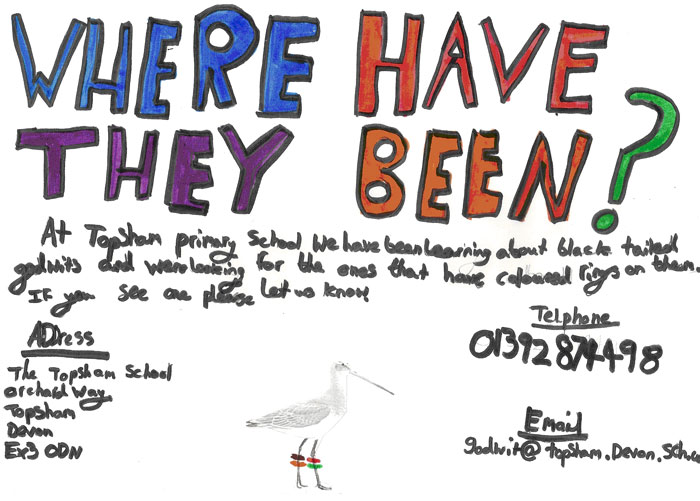 WHERE HAVE
THEY BEEN?
At Topsham primary School We have been Learning about black tailed
godwits and were looking for the ones that have coloured rings on them.
If you see one please let us know
ADress
The Topsham School
orchard Way
Topsham
Devon
Ex3 0DN
Telphone
01392 874498
Email
godwit@topsham.Devon.Sch.